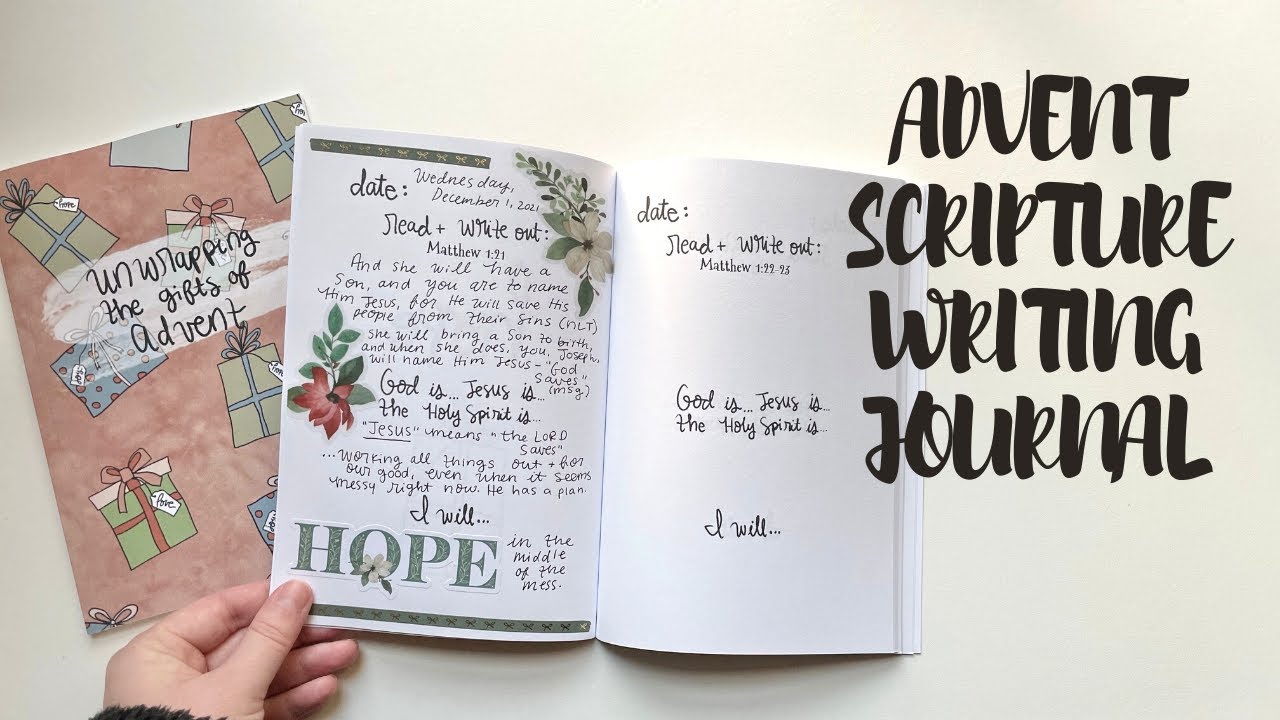 ADVENT
SCRIPTURE
WRITING
JOURNAL
hope
unwrapping
the gifts of
advent
love
date: Wednesday,
December 1, 2021
Read + Write out:
Matthew 1:21
And she will have a
Son, and you are to name
Him Jesus, for He will save His
people from their sins (NLT)
she will bring a son to birth,
and when she does, you, Joseph,
will name Him Jesus - "God
saves" (msg)
God is... Jesus is...
the Holy Spirit is...
"Jesus" means "the LORD
saves"
...working all things out + for
our good, even when it seems
messy right now. He has a plan.
I will...
HOPE in the
middle
of the
mess.
date:
Read + Write out:
Matthew 1:22-23
God is... Jesus is...
the Holy Spirit is...
I will...